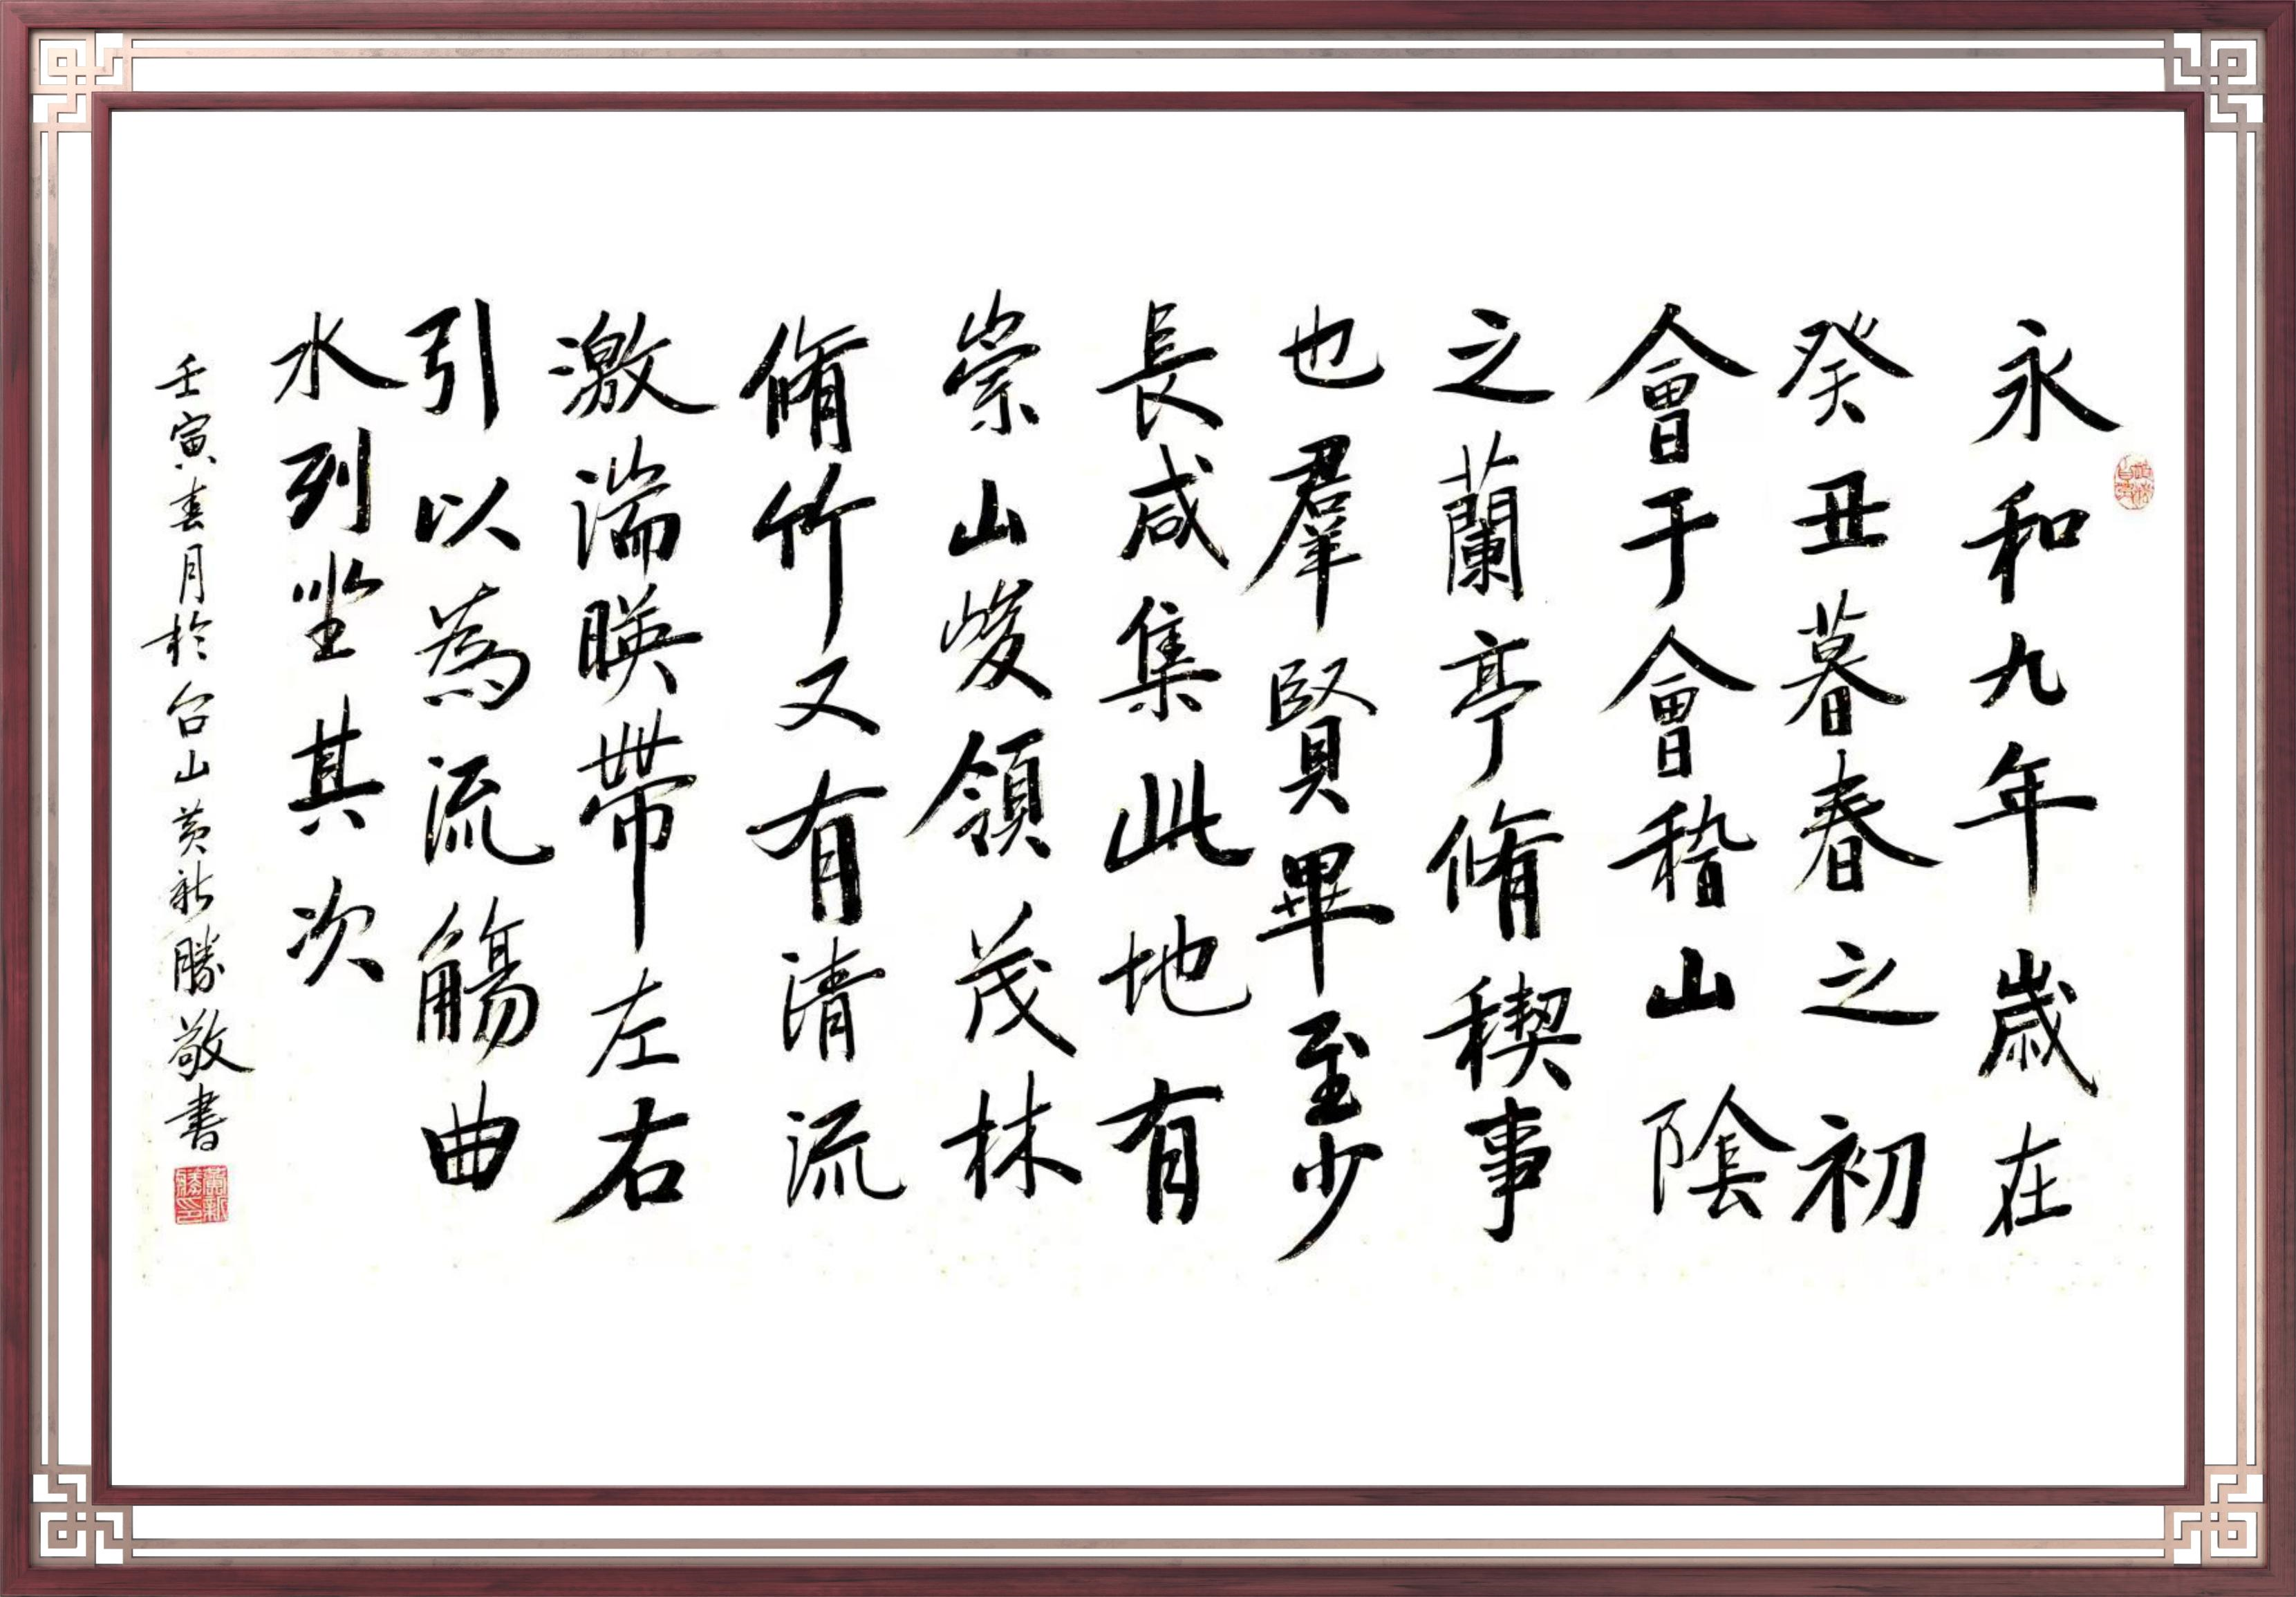 永和九年歲在
癸丑暮春之初
會于會稽山陰
之蘭亭脩稧事
也羣賢畢至少
長咸集此地有
崇山峻領茂林
脩竹又有清流
激湍暎帶左右
引以為流觴曲
水列坐其次
壬寅春月於台山黄新勝敬書
黄新勝印